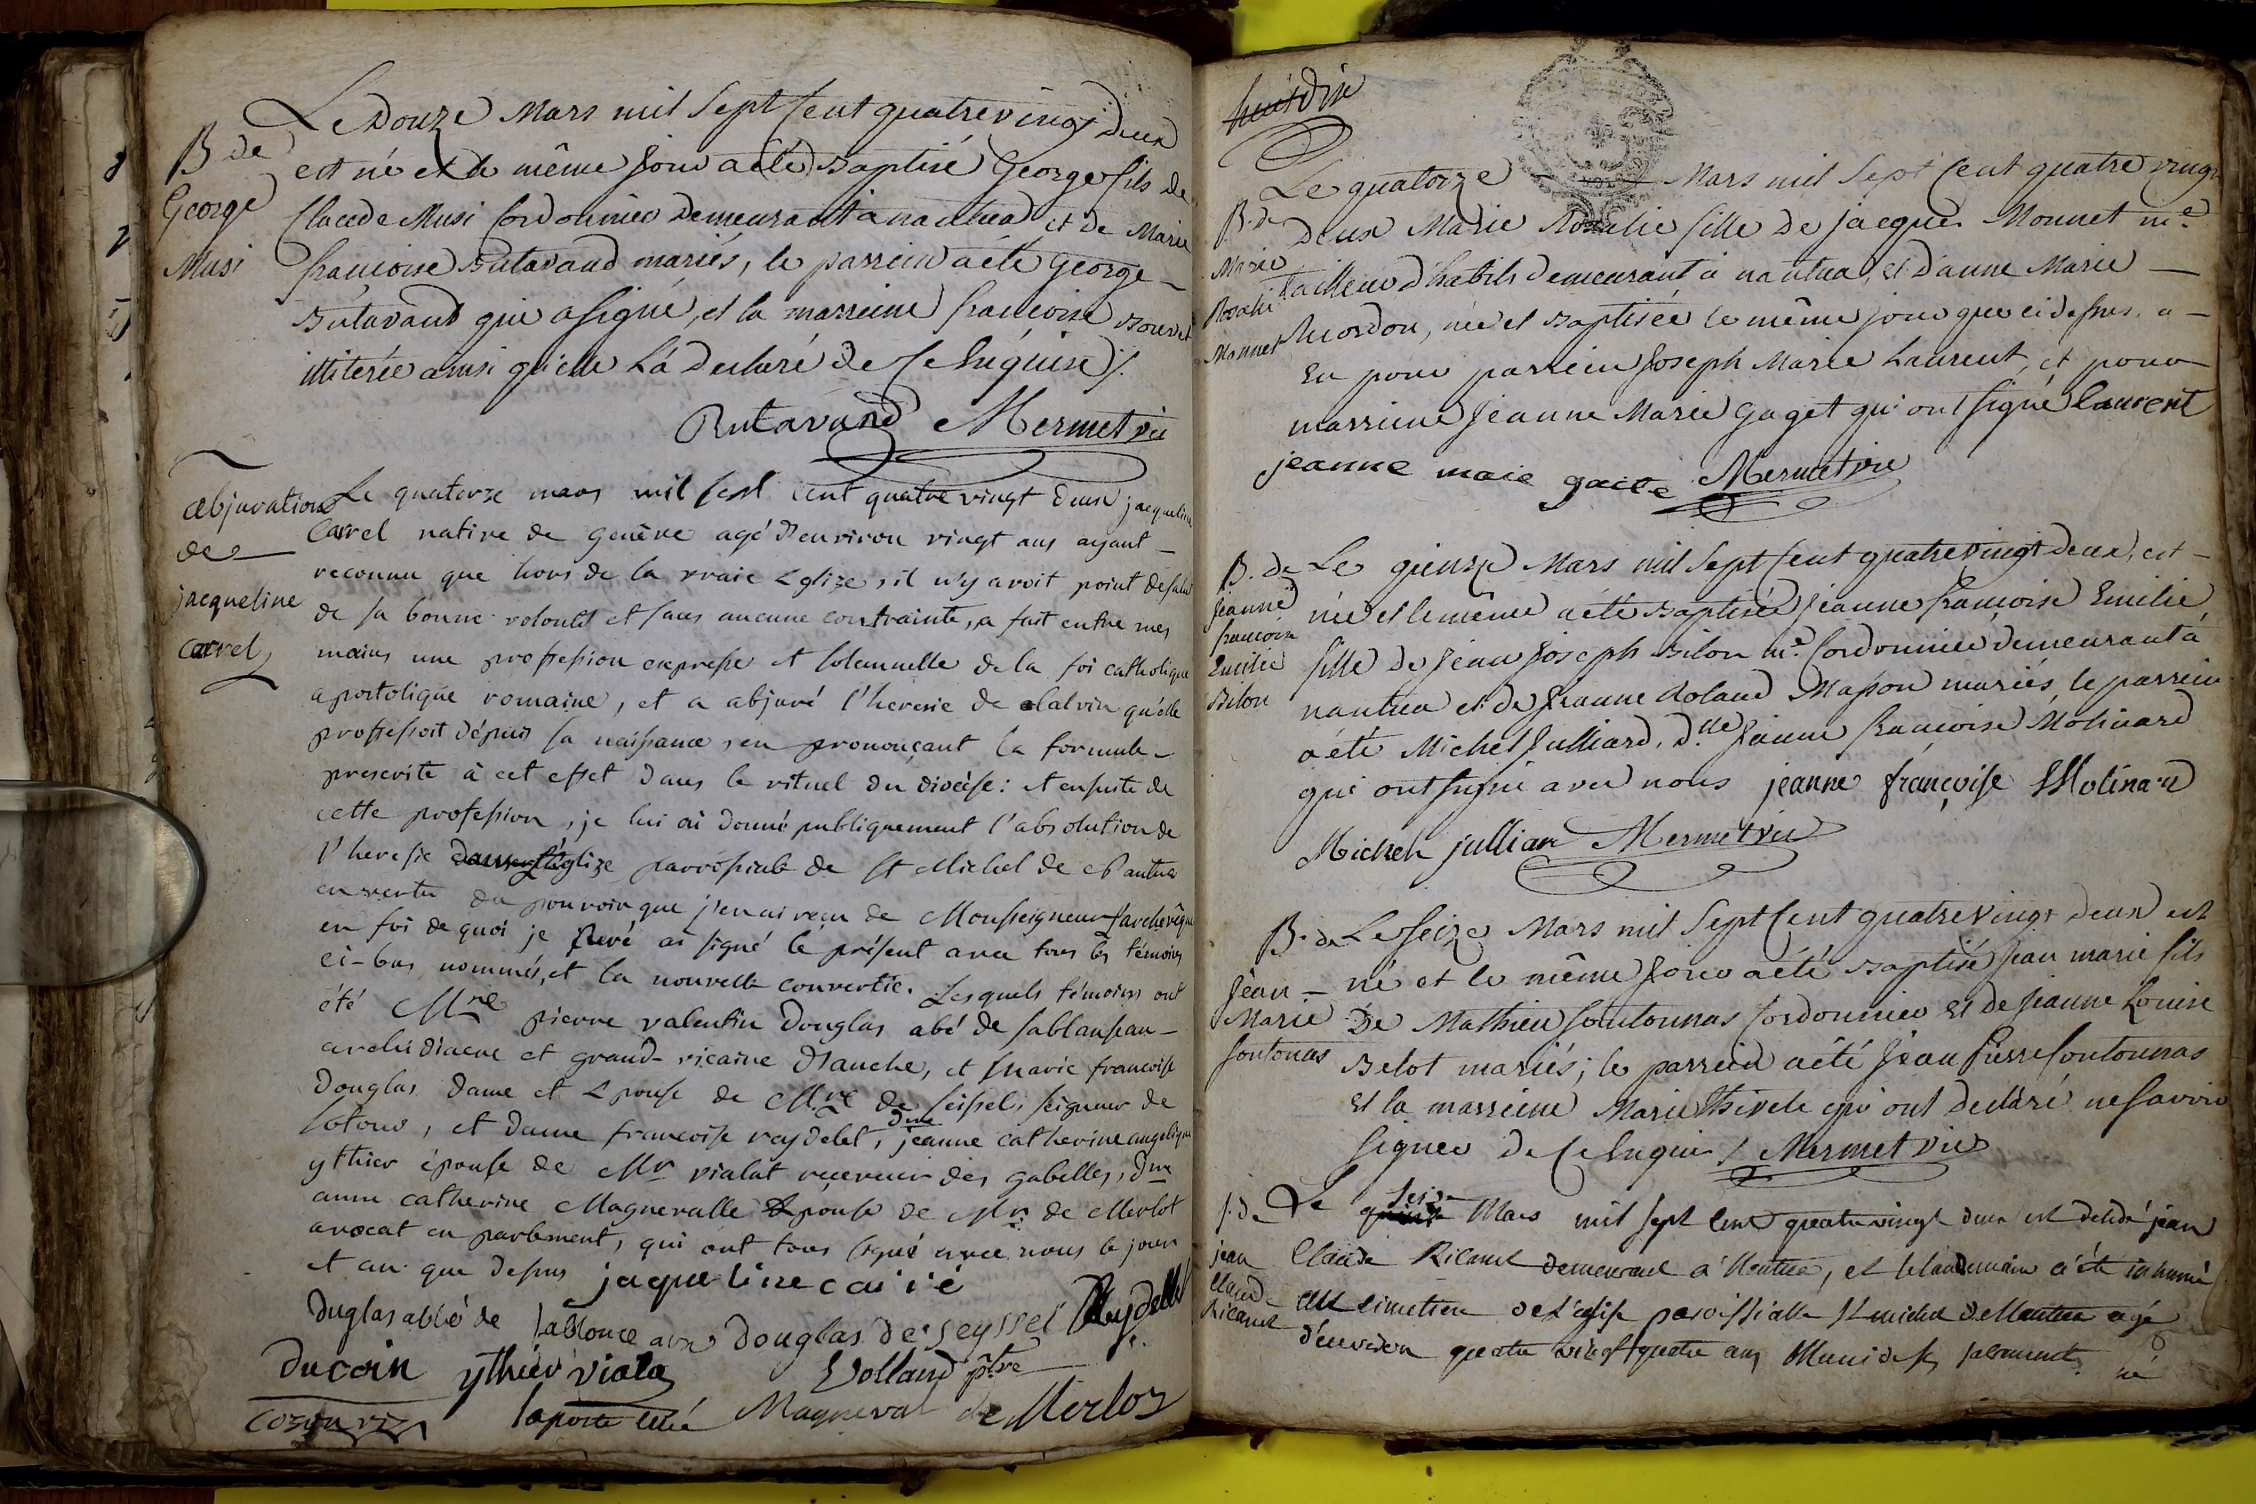 B de
George
Musi
Le Douze Mars mil Sept Cent quatre vingt deux
est né et le même jour a été Baptisé George fils de
Claude Musi Cordonnier demeurant a nantua et de Marie
françoise Butavand mariés, le parrein a été George
Butavand qui a signé, et la marreine françoise Bouvet
illiterée ainsi qu'elle L'a declaré de ce Enquise ./.
Butavand Mermet vic
abjuration
de
jacqueline
Carrel
Le quatorze mars mil sept cent quatre vingt deux jacqueline
Carrel native de genêve agé d'environ vingt ans ayant
reconnu que hors de la vraie Eglize, il n'y avoit point de salut
de sa bonne volonté et sans aucune contrainte, a fait entre mes
mains une profession expresse et solemnelle de la foi catholique
apostolique romaine, et a abjuré l'heresie de Calvin qu'elle
professoit dépuis sa naissance, en prononçant la formule
prescrite à cet effet dans le rituel du diocèse: et ensuite de
cette profession, je lui ai donné publiquement l'absolution de
l'heresie dans l'église parroissiale de St Michel de Nantua
en vertu du pouvoir que j'en ai reçu de Monseigneur l'archevêque
en foi de quoi je curé ai signé le présent avec tous les témoins
ci-bas nommés, et la nouvelle convertie. Lesquels témoins ont
été Mre pierre valentin Douglas abé de sablanseau
archidiacre et grand-vicaire D'auche, et Marie francoise
Douglas Dame et Epouse de Mre de seissel, seigneur de
sotono, et dame francoise reydelet, dme jeanne catherine angelique
ythier épouse de Mr vialat receveur des gabelles, dme
anne catherine Magnevalle Epouse de Mr de Merlot
avocat en parlement, qui ont tous signé avec nous le jour
et an que dessus jaqueline carré
Duglas abbé de sablonce Douglas de seyssel Reydellet
Ducoin ythier viala Volland ptre
laporte curé Magneval de Merloz
huit dix
B. de
Marie
Rosalie
Monnet
Le quatorze Mars mil Sept Cent quatre vingt
deux Marie Rosalie fille de jacques Monnet me
tailleur d'habits demeurant à nantua, et d'anne Marie
Ricordon, née et Baptisée le même jour que ci dessus. a
Eu pour parrein Joseph Marie Laurent, et pour
marreine Jeanne Marie Gaget qui ont signé laurent
jeanne maie gacte Mermet vic
B. de
Jeanne
francoise
Emilie
Bilon
Le quinze Mars mil Sept Cent quatre vingt deux, est
née et le même a été Baptisée Jeanne françoise Emilie
fille de Jean Joseph Bilon me Cordonnier demeurant à
nantua et de Jeanne Roland Masson mariés, le parrein
a été Michel Julliard, Dlle Jeanne francoise Molinard
qui ont signé avec nous jeanne françoise Molinard
Michel jullian Mermet vic
B. de
Jean
Marie
foutounas
Le Seize Mars mil Sept Cent quatre vingt deux est
né et le même Jour a été Baptisé Jean marie fils
De Mathieu foutounas Cordonnier Et de Jeanne Louise
Belot mariés; le parrein a été Jean Pierre foutounas
Et la marreine Marie Thivele qui ont declaré ne savoir
signer De Ce Enquis ./. Mermet vic
S. de
jean
Claude
Ricanet
Le quinze seize Mars mil sept cent quatre vingt deux est decedé jean
Claude Ricanet demeurant a Nantua, et le landemain a été inhumé
au cimetiere de l'eglise paroissialle St michel de Nantua agé
d'environ quatre vingt quatre ans Muni des sacrements
né